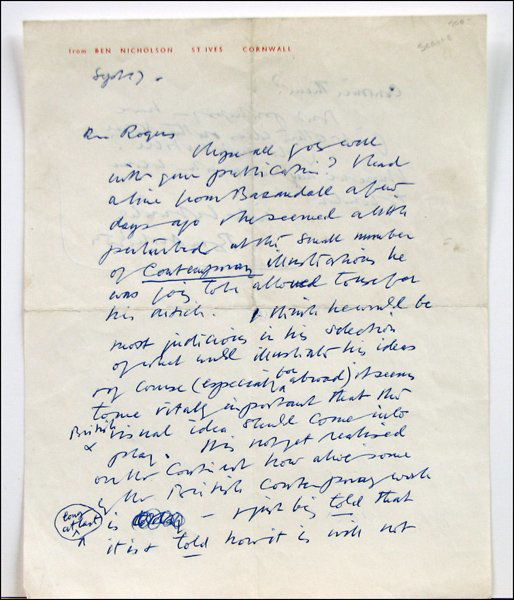 from BEN NICHOLSON ST IVES CORNWALL
Dear Rogers
I hope all goes well
with your publication? I had
a line from Baxandall a few
days ago & he seemed a little
perturbed at the small number
of Contemporary illustrations he
was going to be allowed to use for
his article. I think he would be
most judicious in his selection
of what will illustrate his ideas
& of course (especially for abroad) it seems
to me vitally important that the
British
& visual idea should come into
play. It is not yet realised
on the Continent how alive some
of the British Contemporary work
is - & just being told that
long
at last
it is & told how it is will not